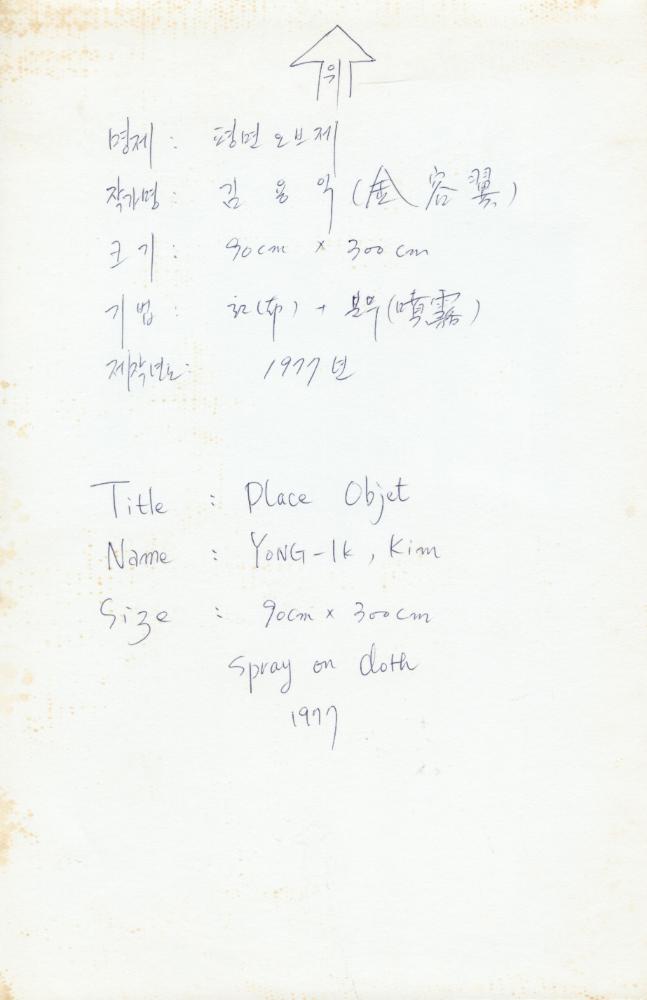 위
명제 : 평면 오브제
작가명 : 김 용 익 (金 容 翼)
크기 : 90cm × 300cm
기법 : 천(布) + 분무(噴霧)
제작년도: 1977년
Title : Place Objet
Name : YONG-IK, Kim
Size : 90cm × 300cm
Spray on cloth
1977